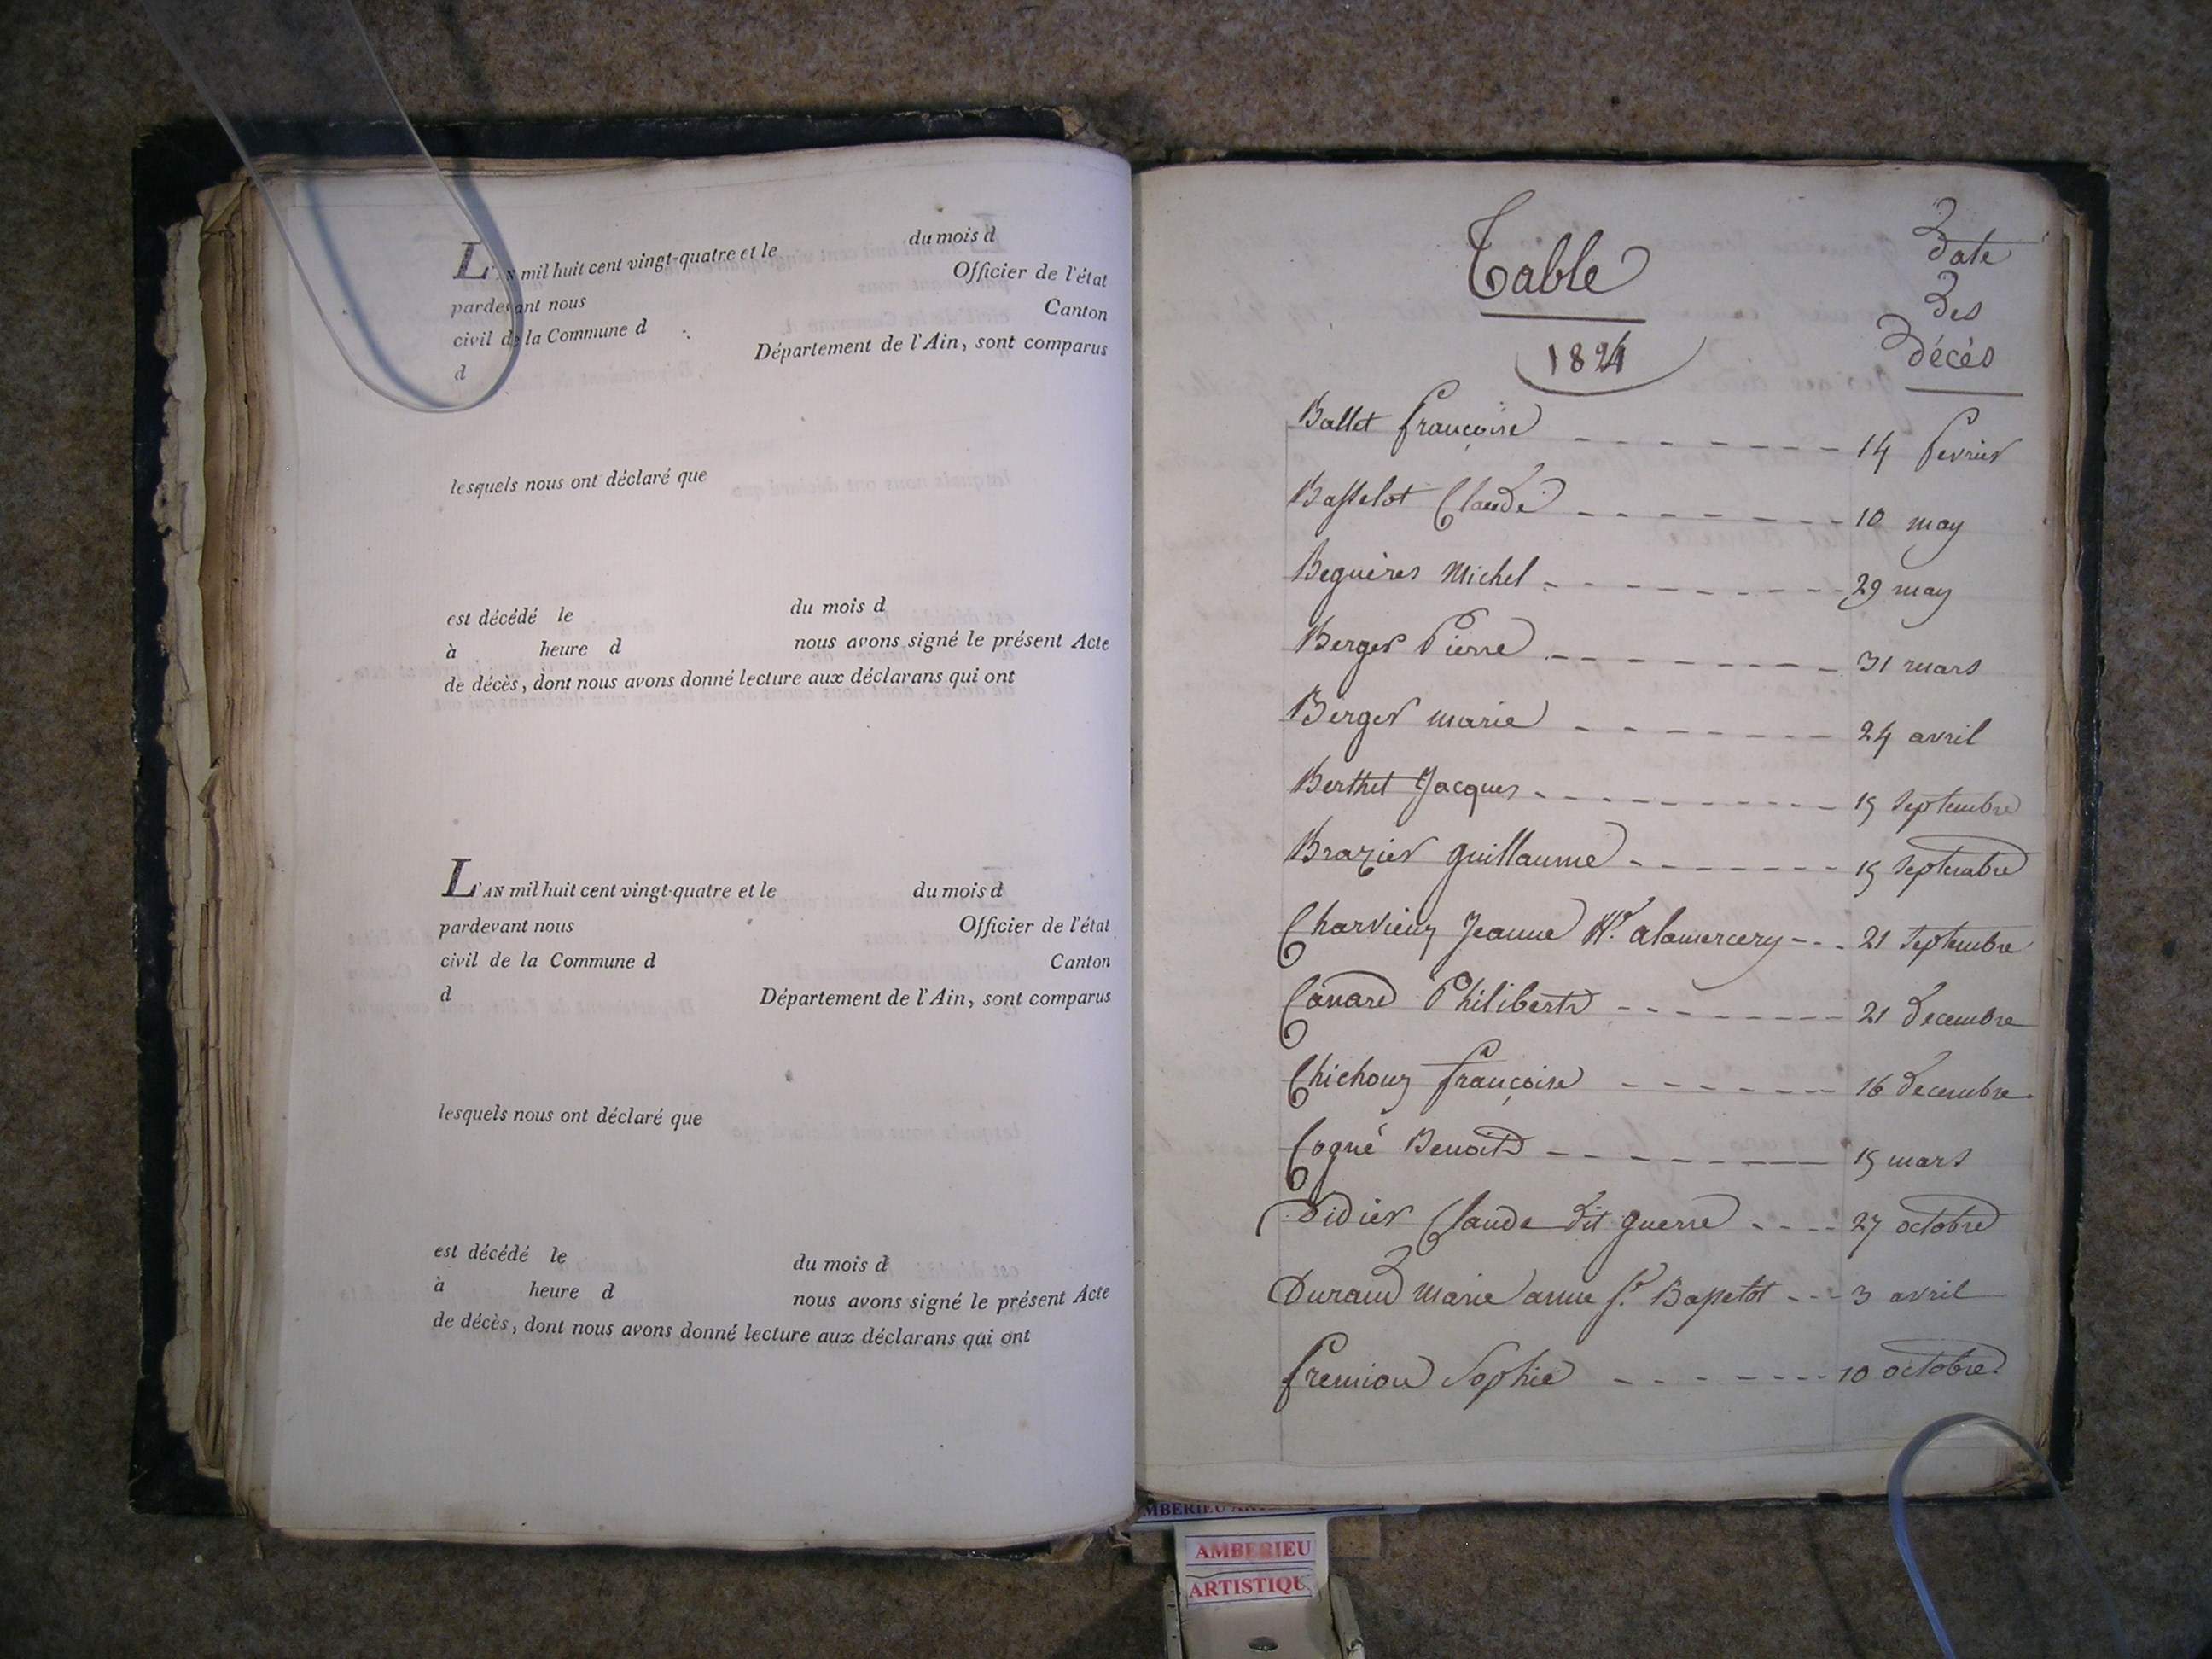 L'AN mil huit cent vingt-quatre et le du mois d
pardevant nous Officier de l'état
civil de la Commune d Canton
d Département de l'Ain, sont comparus
lesquels nous ont déclaré que
est décédé le du mois d
à heure d nous avons signé le présent Acte
de décès, dont nous avons donné lecture aux déclarans qui ont
L'AN mil huit cent vingt-quatre et le du mois d
pardevant nous Officier de l'état
civil de la Commune d Canton
d Département de l'Ain, sont comparus
lesquels nous ont déclaré que
est décédé le du mois d
à heure d nous avons signé le présent Acte
de décès, dont nous avons donné lecture aux déclarans qui ont
Table
1824
Date
Des
décès
Ballet françoise 14 fevrier
Basselot Claude 10 may
Beguères Michel 29 may
Berger Pierre 31 mars
Berger marie 24 avril
Berthet Jacques 15 septembre
Brazier guillaume 15 septembre
Charvieuz Jeanne Ve. alamercery 21 septembre
Canard Philibert 21 decembre
Chichouz françoise 16 decembre
Cogné Benoit 15 mars
Didier Claude dit guerre 27 octobre
Durand Marie anne fe. Basselot 3 avril
fremiou Sophie 10 octobre
AMBERIEU
ARTISTIQU